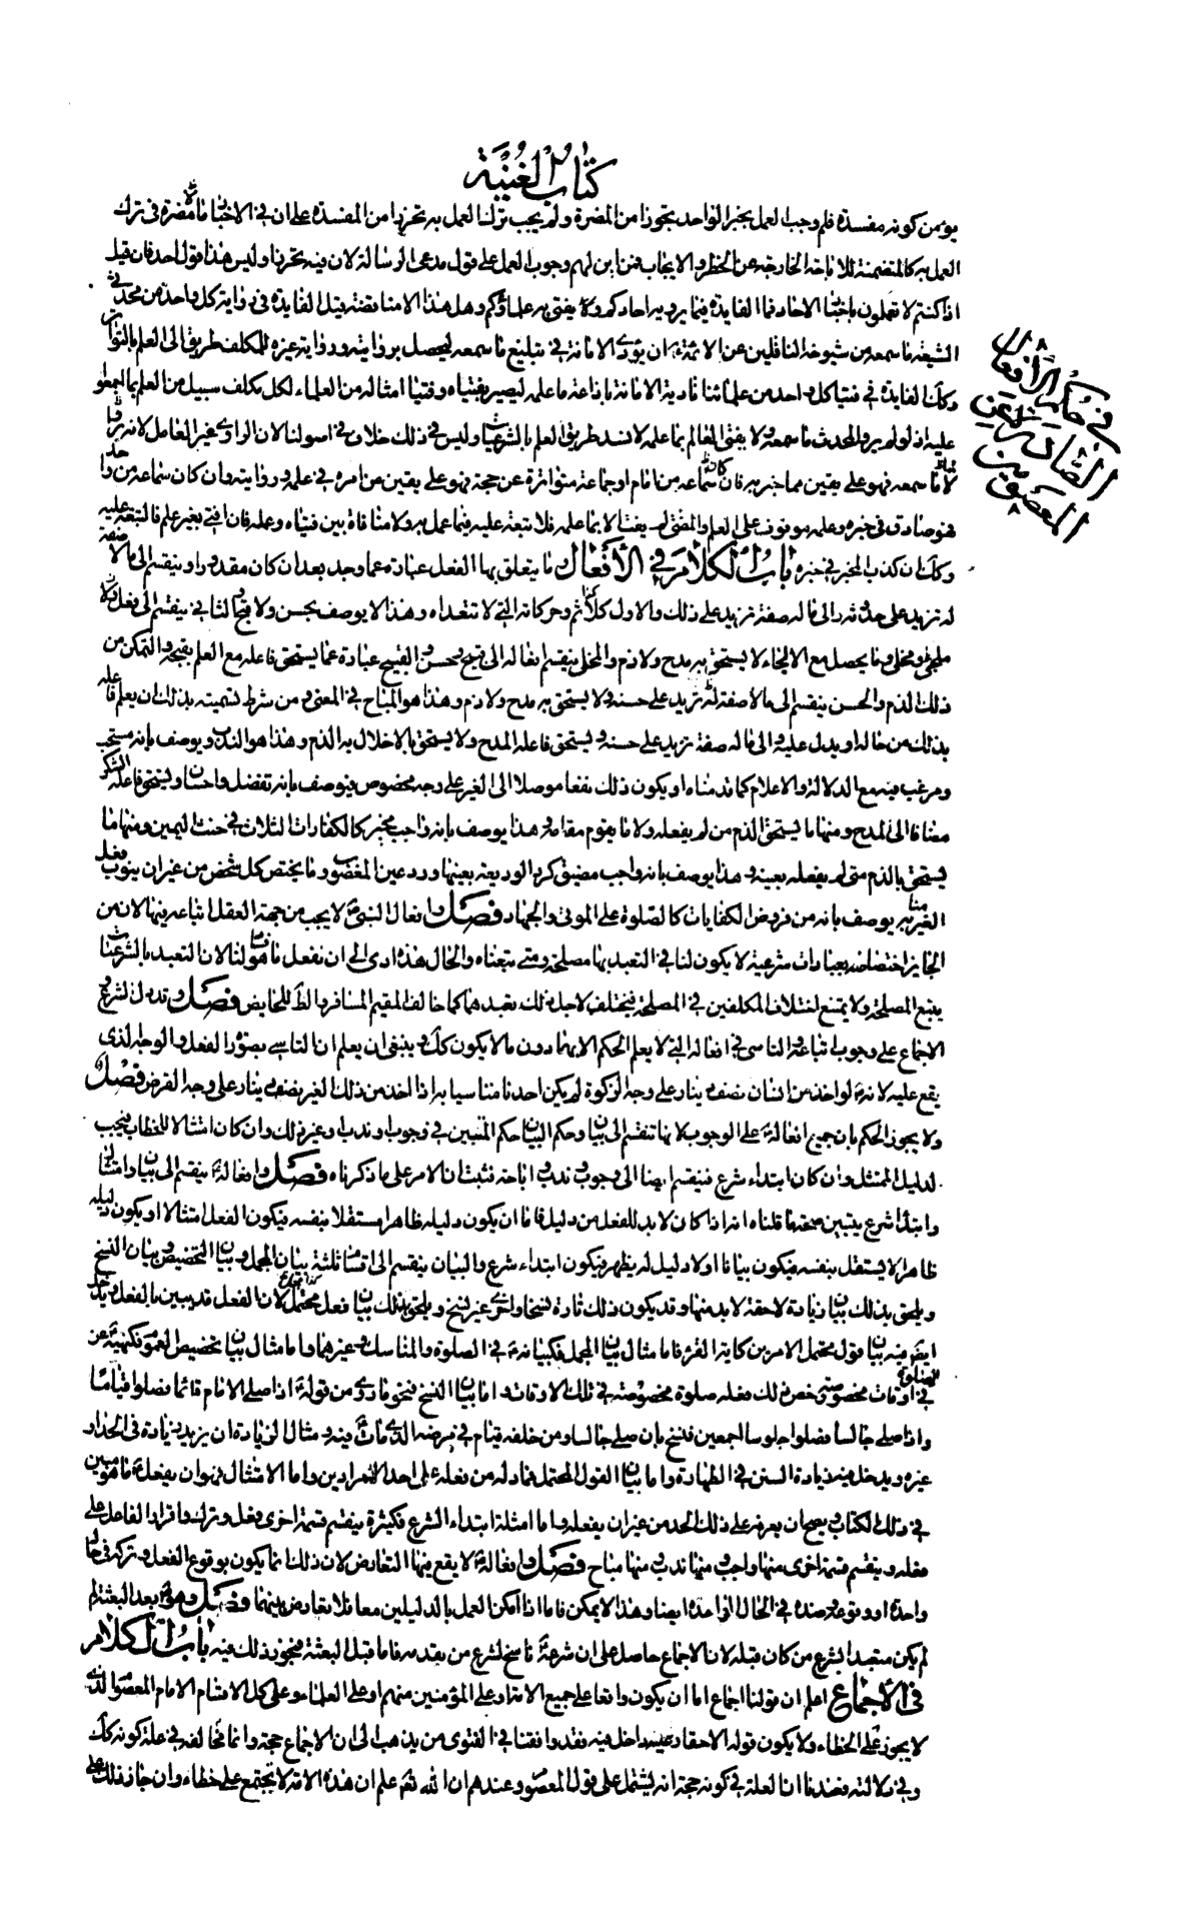 كتاب الغنية
يؤمن كونه مفسدة فلم وجب العمل بخبر الواحد تحوزا من المضرة ولم يجب ترك العمل به تحرزا من المفسدة على ان في الاخبار ما لا مضرة في ترك
العمل به كالمتضمنة للاباحة الخارجة عن الحظر والايجاب فمن اين لهم وجوب العمل على قول مدعى الرسالة لان فيه تحرزا وليس هذا قول احد فان قيل
اذا كنتم لا تعملون باخبار الاحاد فما الفايدة فيما يرويه احادكم ولا يفتى به علماؤكم وهل هذا الا مناقضة قيل الفايدة في رواية كل واحد من محدثي
الشيعة ما سمعه من شيوخه الناقلين عن الائمة ان يؤدى الامانة في تبليغ ما سمعه ليحصل بروايته ورواية غيره للمكلف طريق الى العلم بالتواتر
وكك الفايدة في فتيا كل واحد من علمائنا تادية الامانة باذاعة ما علمه ليصير بفتياه وفتيا امثاله من العلماء لكل مكلف سبيل من العلم بالمعول
عليه اذ لو لم يرو المحدث ما سمعه ولا يفتى العالم بما علمه لانسد طريق العلم بالشرعيات وليس في ذلك خلاف في اصولنا لان الراوى مخبر العامل لانه
لا ما سمعه فهو على يقين مما خبر به فان كان سماعه من امام او جماعة متواترة عن حجة فهو على يقين من امره في علمه وروايته وان كان سماعه من واحد
فهو صادق في خبره وعلمه موقوف على العلم والمفتى لم يفت الا بما علمه فلا تبعة عليه فيما عمل به ولا منافاة بين فتياه وعمله فان افتى بغير علم فالتبعة عليه
وكك ان كذب المخبر في خبره باب الكلام في الافعال ما يتعلق بها الفعل عبارة عما وجد بعد ان كان مقدورا وينقسم الى ما لا صفة
له تزيد على حدوثه والى ما له صفة تزيد على ذلك والاول كلام النائم وحركاته التي لا تتعداه وهذا لا يوصف بحسن ولا قبح والثاني ينقسم الى فعل
ملجئ ومخلى وما يحصل مع الالجاء لا يستحق به مدح ولا ذم والمخلى ينقسم افعاله الى قبيح وحسن والقبيح عبارة عما يستحق فاعله مع العلم بقبحه والتمكن من
ذلك الذم والحسن ينقسم الى ما لا صفة له تزيد على حسنه ولا يستحق به مدح ولا ذم وهذا هو المباح في المعنى ومن شرط تسميته بذلك ان يعلم فاعله
بذلك من حاله او يدل عليه والى ما له صفة تزيد على حسنه ويستحق فاعله المدح ولا يستحق بالاخلال به الذم وهذا هو الندب ويوصف بانه مستحب
ومرغب فيه مع الدلالة والاعلام كما قدمناه او يكون ذلك نفعا موصلا الى الغير على وجه مخصوص فيوصف بانه تفضل واحسان ويستحق فاعله الشكر
مضافا الى المدح ومنها ما يستحق الذم من لم يفعله ولا ما يقوم مقامه وهذا يوصف بانه واجب مخير كالكفارات الثلاث في حنث اليمين ومنها ما
يستحق بالذم متى لم يفعله بعينه وهذا يوصف بانه واجب مضيق كرد الوديعة بعينها ورد عين المغصوب وما يختص كل شخص من غير ان ينوب فعل
الغير منابه يوصف بانه من فروض الكفايات كالصلوة على الموتى والجهاد فصل وافعال النبي لا يجب من جهة العقل اتباعه فيها لان من
الجايز اختصاصه بعبادات شرعية لا يكون لنا في التعبد بها مصلحة ومتى تبعناه والحال هذه ادى الى ان نفعل ما هو لنا لان التعبد بالشرعيات
يتبع المصلحة ولا يمتنع اختلاف المكلفين في المصلحة فيختلف لاجل ذلك تعبدهما كما خالف المقيم المسافر والطاهر للحايض فصل وقد دل الشرع
الاجماع على وجوب اتباعه والتاسى في افعاله التي لا يعلم الحكم الا بها دون ما لا يكون كك وينبغى ان يعلم ان التاسى بصورة الفعل والوجه الذى
يقع عليه لانه لو اخذ من انسان نصف دينار على وجه الزكوة لم يكن احدنا متاسيا به اذا اخذ من ذلك الغير نصف دينار على وجه القرض فصل
ولا يجوز الحكم بان جميع افعاله على الوجوب لانها تنقسم الى بيان وحكم البيان حكم المتبين في وجوب او ندب او غير ذلك وان كان امتثالا لخطاب فبحسب
الدليل الممتثل وان كان ابتداء شرع فينقسم ايضا الى وجوب وندب واباحة فثبت ان الامر على ما ذكرناه فصل وافعاله ينقسم الى بيان وامتثال
وابتداء شرع يتبين صحة ما قلناه انه اذا كان لا بد للفعل من دليل فاما ان يكون دليله ظاهرا مستقلا بنفسه فيكون الفعل امتثالا او يكون دليله
ظاهرا لا يستقل بنفسه فيكون بيانا او لا دليل له يظهر فيكون ابتداء شرع والبيان ينقسم الى اقسام ثلثة بيان المجمل وبيان التخصيص وبيان النسخ
ويلحق بذلك بيان زيادة لاحقة لا بد منها وقد يكون ذلك تارة نسخا واخرى غير نسخ ويلحق بذلك بيان فعل محتمل لان الفعل قد يبين بالفعل ويدخل
ايضا فيه بيان قول محتمل الامرين كاية القرء فاما مثال بيان المجمل فكبيانه في الصلوة والمناسك وغيرهما واما مثال بيان تخصيص العموم فكنهيه عن
الصلوة في اوقات مخصوصة خص ذلك بفعله صلوة مخصوصة في تلك الاوقات واما بيان النسخ فنحو ما روى من قوله اذا صلى الامام قائما فصلوا قياما
واذا صلى جالسا فصلوا جلوسا اجمعين فنسخ بان صلى جالسا ومن خلفه قيام في مرضه الذى مات فيه ومثال الزيادة ان يزيد زيادة في الحد او
غيره ويدخل فيه زيادة السنن في الطهارة واما بيان القول المحتمل فما دله من فعله على احد المرادين واما الامتثال فهو ان يفعل ما هو مبين
في ذلك الكتاب ويصح ان يعرف على ذلك الحد من غير ان يفعله واما امثلة ابتداء الشرع فكثيرة ينقسم قسمة اخرى وفعل وترك واقرار الفاعل على
فعله وينقسم قسمة اخرى منها واجب ومنها ندب ومنها مباح فصل وافعاله لا يقع فيها التعارض لان ذلك انما يكون بوقوع الفعل وتركه في حال
واحدة او وقوع ضده في الحال الواحدة ايضا وهذا لا يمكن فاما اذا امكن العمل بالدليلين معا فلا تعارض بينهما فصل وهو بعد البعثة لم
لم يكن متعبدا بشرع من كان قبله لان الاجماع حاصل على ان شرعه ناسخ لشرع من تقدمه فاما قبل البعثة فيجوز ذلك فيه باب الكلام
في الاجماع اعلم ان قولنا اجماع اما ان يكون واقعا على جميع الامة او على المؤمنين منهم او على العلماء وعلى كل الاقسام الامام المعصوم الذى
لا يجوز على الخطاء ولا يكون قوله الا حقا وعينه داخل فيه فقد وافقنا في الفتوى من يذهب الى ان الاجماع حجة وانما نخالفه في علة كونه كك
وفي دلالته فعندنا ان العلة في كونه حجة انه يشتمل على قول المعصوم وعندهم ان الله تعم علم ان هذه الامة لا تجتمع على خطاء وان جاز ذلك على
في حكم الافعال
الصادرة عن
المعصومين